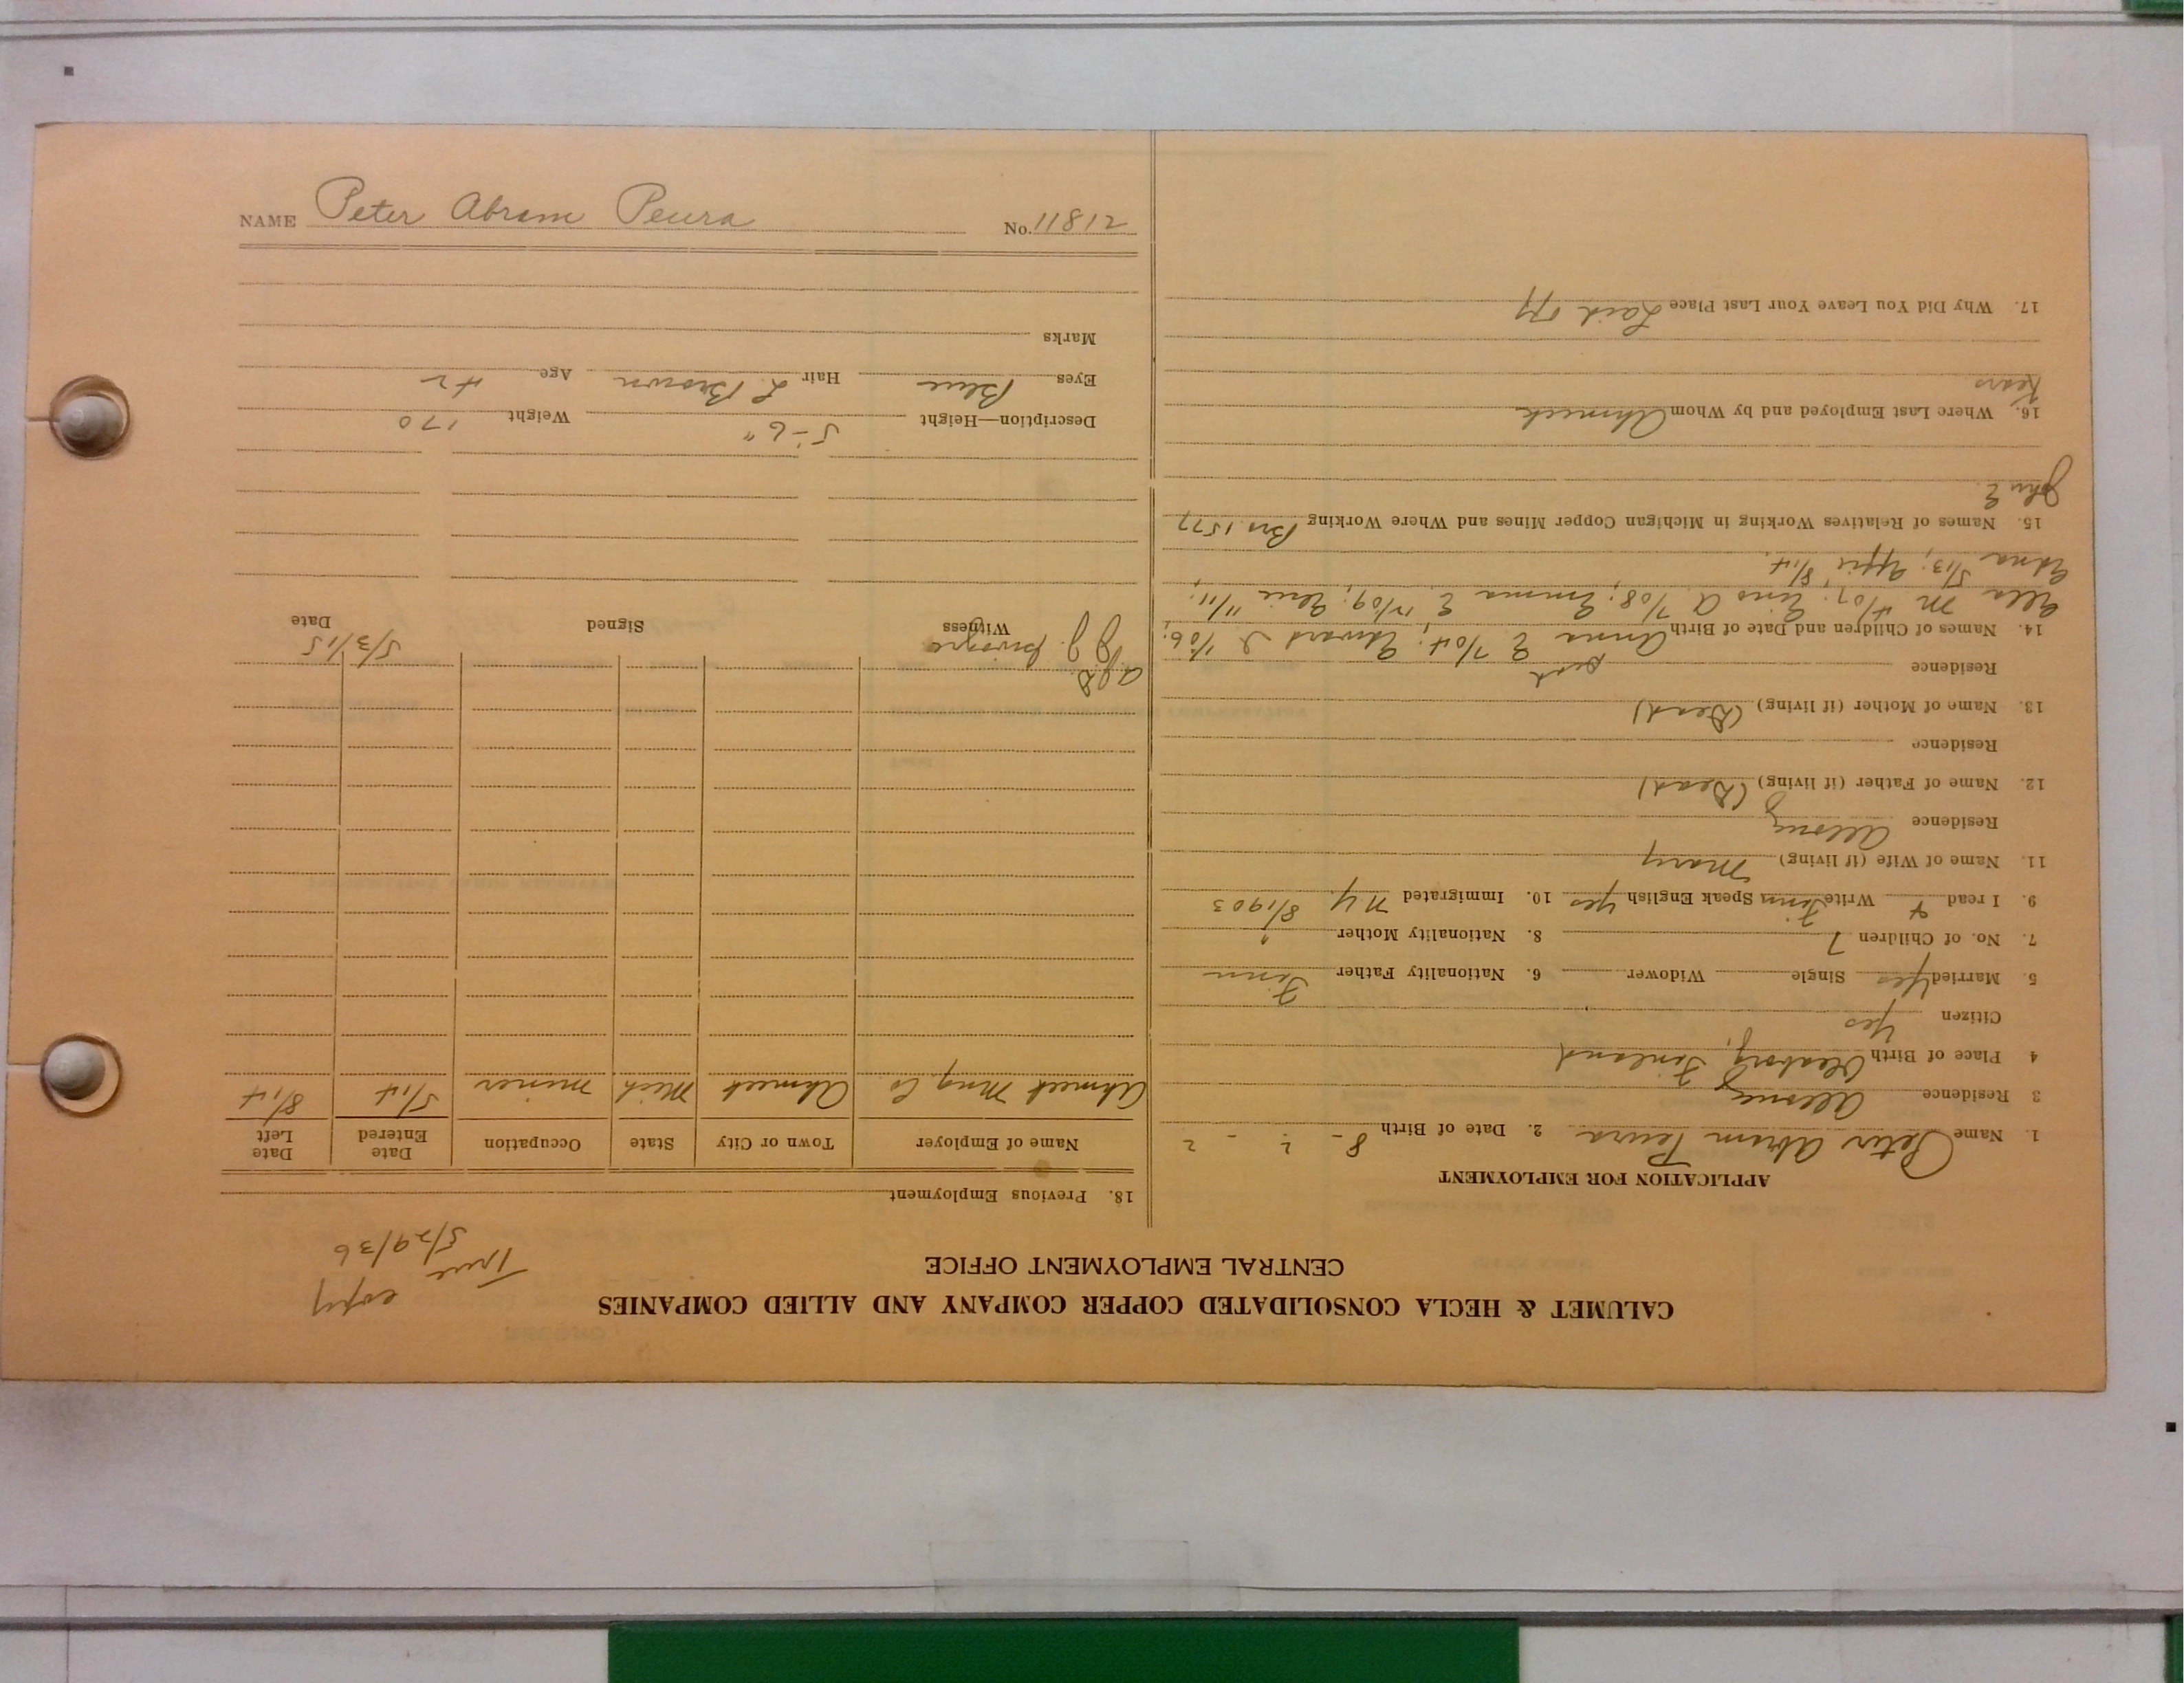 NAME Peter Abram Peura No. 11812
CALUMET & HECLA CONSOLIDATED COPPER COMPANY AND ALLIED COMPANIES
CENTRAL EMPLOYMENT OFFICE
True copy
5/29/36
APPLICATION FOR EMPLOYMENT
1. Name Peter Abram Peura 2. Date of Birth 8 - ? - ?
3 Residence Allouez
4 Place of Birth Uleaborg, Finland
Citizen Yes
5. Married Yes Single Widower 6. Nationality Father Finn
7. No. of Children 7 8. Nationality Mother "
9. I read + Write Finn Speak English Yes 10. Immigrated N.Y. 8/1903
11. Name of Wife (if living) Mary
Residence Allouez
12. Name of Father (if living) (Dead)
Residence
13. Name of Mother (if living) (Dead)
Residence
14. Names of Children and Date of Birth Anna E 7/04; Edward I 1/06;
Ella M 4/07; Eino A. 7/08; Emma E. 12/09; Elsie 11/11;
Edna 5/13; 8/14.
15. Names of Relatives Working in Michigan Copper Mines and Where Working Bro. 1577
John E
16. Where Last Employed and by Whom Ahmeek
Kears
17. Why Did You Leave Your Last Place Laid Off
18. Previous Employment
Name of Employer Town or City State Occupation Date Entered Date Left
Ahmeek Mng. Co. Ahmeek Mich miner 5/14 8/14
5/3/15
Witness Signed Date
Description—Height 5'-6" Weight 170
Eyes Blue Hair L. Brown Age 42
Marks